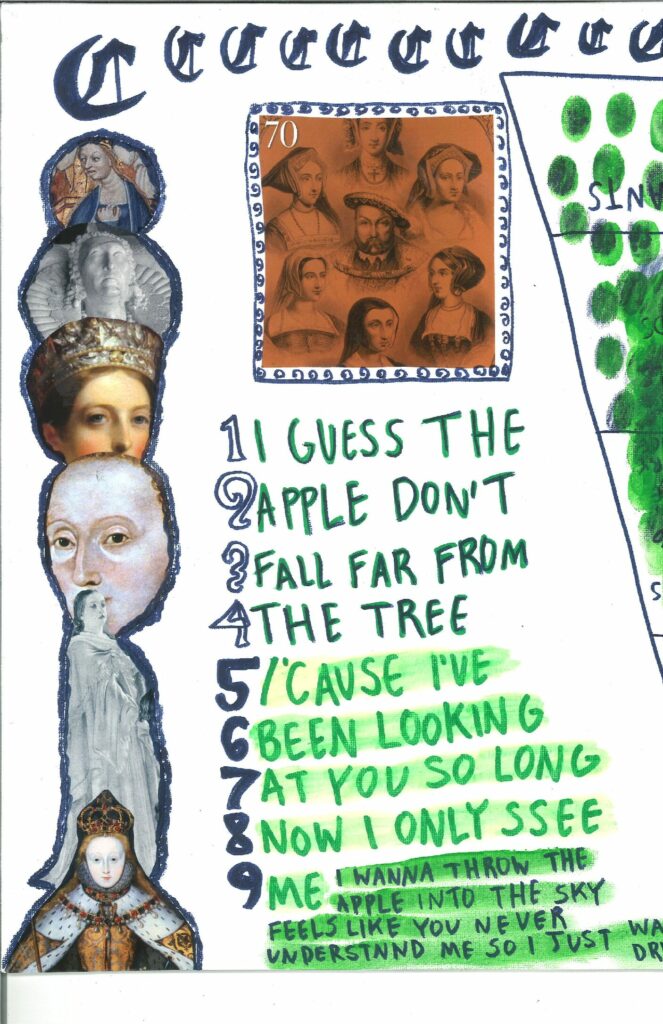 C C C C C C C C C C
70
1 I GUESS THE
2 APPLE DON'T
3 FALL FAR FROM
4 THE TREE
5 /'CAUSE I'VE
6 BEEN LOOKING
7 AT YOU SO LONG
8 NOW I ONLY SSEE
9 ME I WANNA THROW THE
APPLE INTO THE SKY
FEELS LIKE YOU NEVER
UNDERSTNND ME SO I JUST WA
DR
ANTS